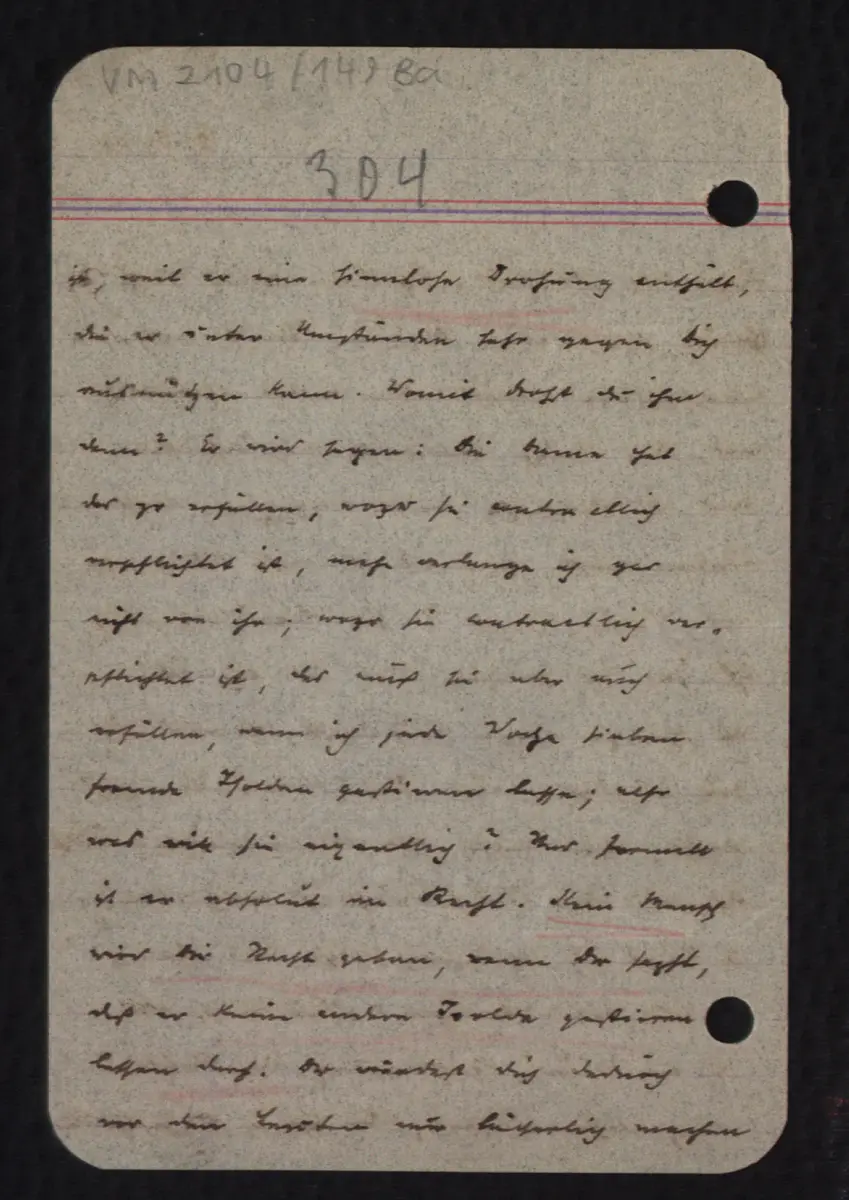 VM 2104/149 Ba
304
ist, weil er eine sinnlose Drohung enthält,
die er unter Umständen sehr gegen Dich
ausnützen kann. Womit drohst du ihm
denn? Er wird sagen: Die Dame hat
das zu erfüllen, wozu sie contractlich
verpflichtet ist, mehr verlange ich gar
nicht von ihr; wozu sie contractlich ver-
pflichtet ist, das muß sie aber auch
erfüllen, wenn ich jede Woche sieben
fremde Isolden gastieren lasse; also
was will sie eigentlich? Und formell
ist er absolut im Recht. Kein Mensch
wird Dir Recht geben, wenn Du sagst,
daß er keine andere Isolde gastieren
lassen darf. Du würdest Dich dadurch
vor den Leuten nur lächerlich machen